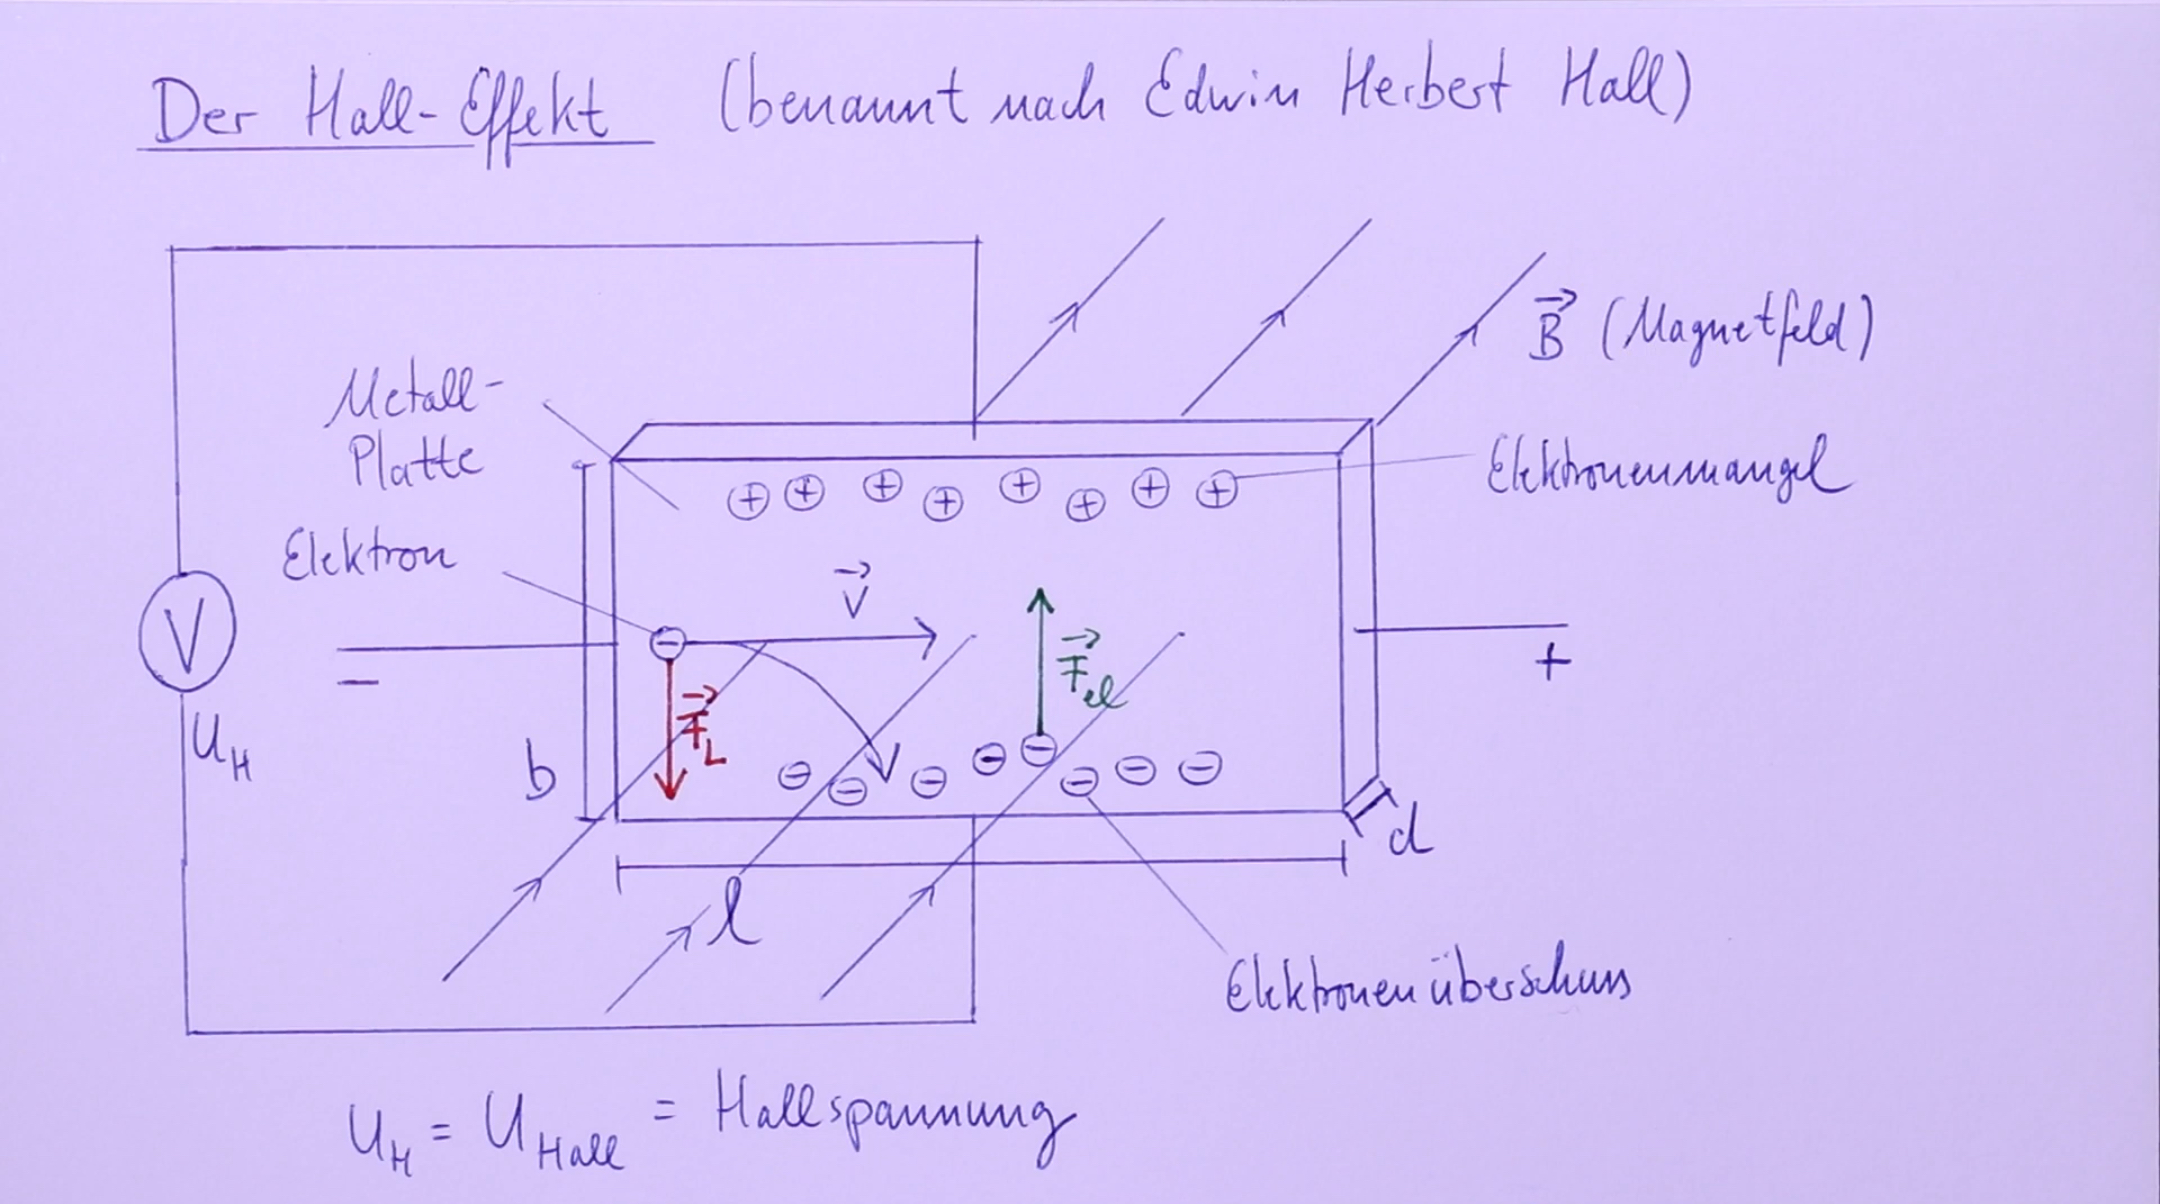 Der Hall-Effekt (benannt nach Edwin Herbert Hall)
B (Magnetfeld)
Metall-
Platte
Elektronenmangel
+ + + + + + + +
Elektron
V
V
-
-
+
F_el
F_L
U_H
b
- - - - - - - -
d
l
Elektronenüberschuss
U_H = U_Hall = Hallspannung